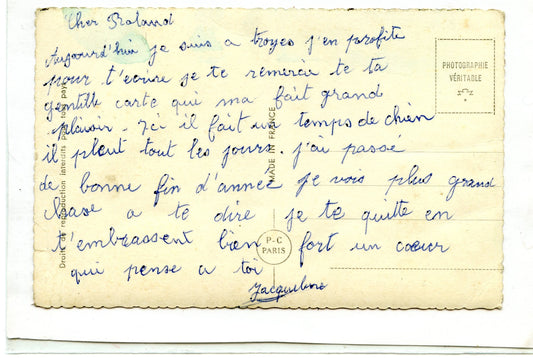 Cher Roland
Aujourd'hui je suis a troyes j'en profite
pour t'écrire je te remercie te ta
gentille carte qui ma fait grand
plaisir. Ici il fait un temps de chien
il pleut tout les jours. j'ai passé
de bonne fin d'année je vois plus grand
chose a te dire je te quitte en
t'embrassent bien fort un cœur
qui pense a toi
Jacqueline
PHOTOGRAPHIE
VÉRITABLE
MADE IN FRANCE
P-C
PARIS
Droits de reproduction interdits pour tous pays